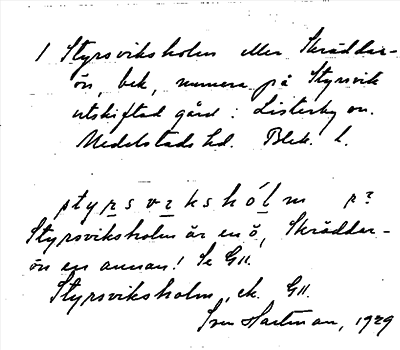 1 Styrsviksholm eller Skräddar-
ön, bek, numera på Styrsvik
utskiftad gård: Listerby sn.
Medelstads hd. Blek. l.
styrsvikshólm
Styrsviksholm är en ö, Skräddar-
ön en annan! Se G11.
Styrsviksholm, ek. G11.
Sven Hartman, 1929